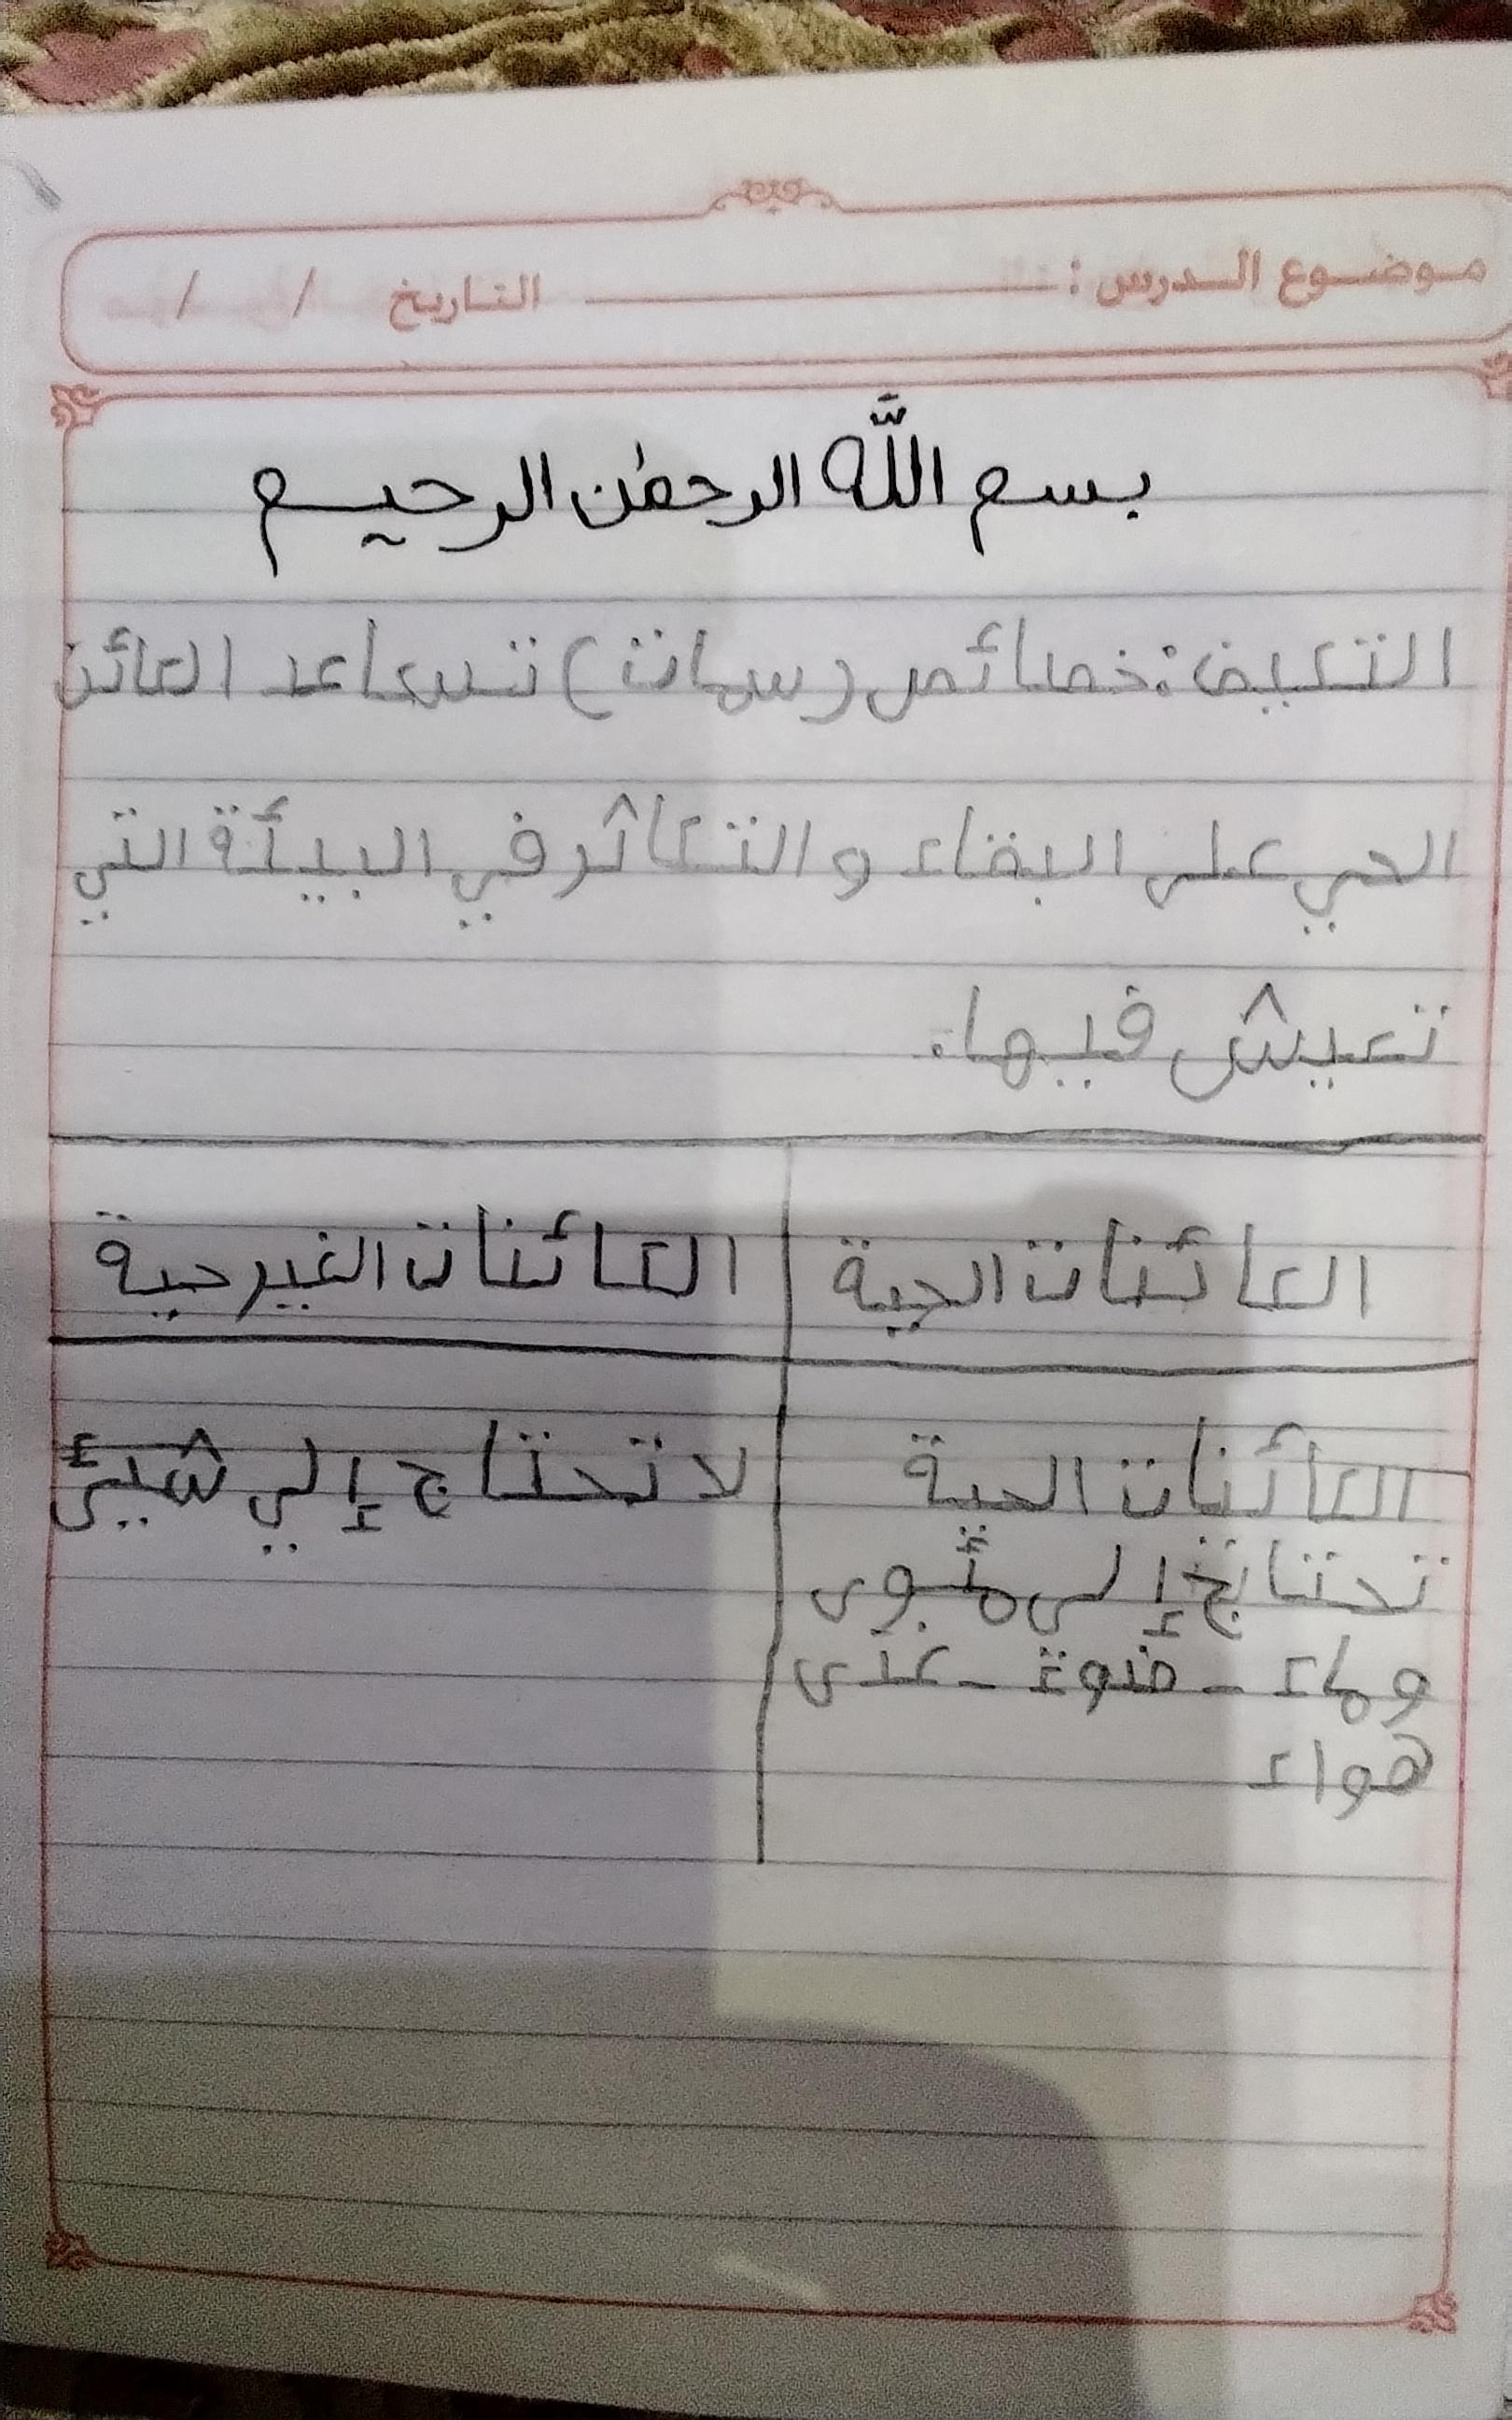 موضوع الدرس : التاريخ / /
بسم اللَّه الرحمٰن الرحيم
التكيف: خصائص (سمات) تساعد الكائن
الحي على البقاء و التكاثر في البيئة التي
تعيش فيها.
الكائنات الحية
الكائنات الغير حية
الكائنات الحية
تحتاج إلى
وماء - ضوء -
هواء
لا تحتاج إلي شيئ